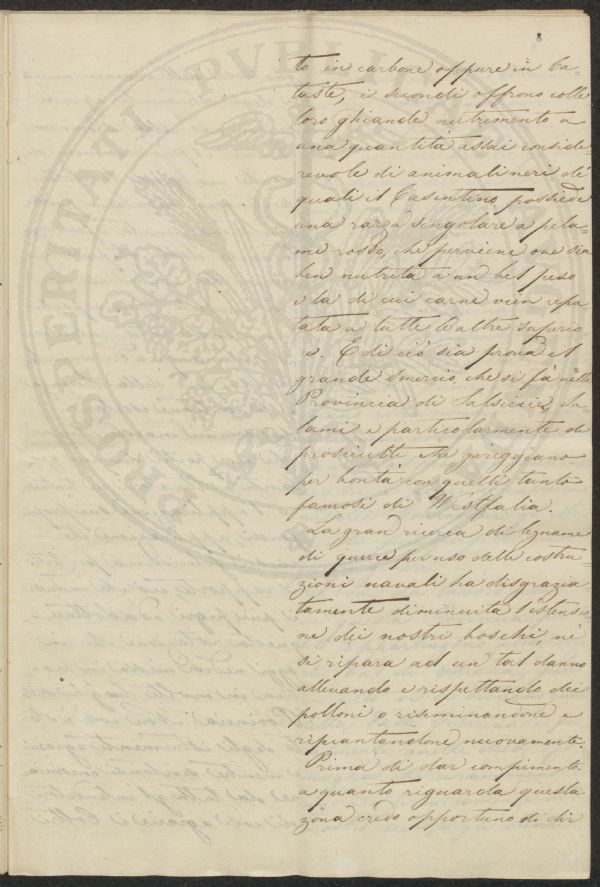 8
to in carbone oppure in ca-
taste, i secondi offrono colle
loro ghiande nutrimento a
una quantità assai conside
revole di animali neri de'
quali il Casentino possiede
una razza singolare a pela-
me rosso, che perviene ove sia
ben nutrita a un bel peso
e la di cui carne vien repu
tata a tutte le altre superio
re. E di ciò sia prova il
grande smercio, che si fà nella
Provincia di Salsicie, Sa-
lami e particolarmente di
prosciutti che pareggiano
per bontà con quelli tanto
famosi di Westfalia.
La gran ricerca di legname
di querce per uso delle costru-
zioni navali ha disgrazia-
tamente diminuita l'estensio
ne dei nostri boschi, nè
si ripara ad un tal danno
allevando e rispettando dei
polloni o riseminandone e
ripiantandone nuovamente.
Prima di dar compimento
a quanto riguarda questa
zona credo opportuno di dir
PROSPERITATI PVBLIC